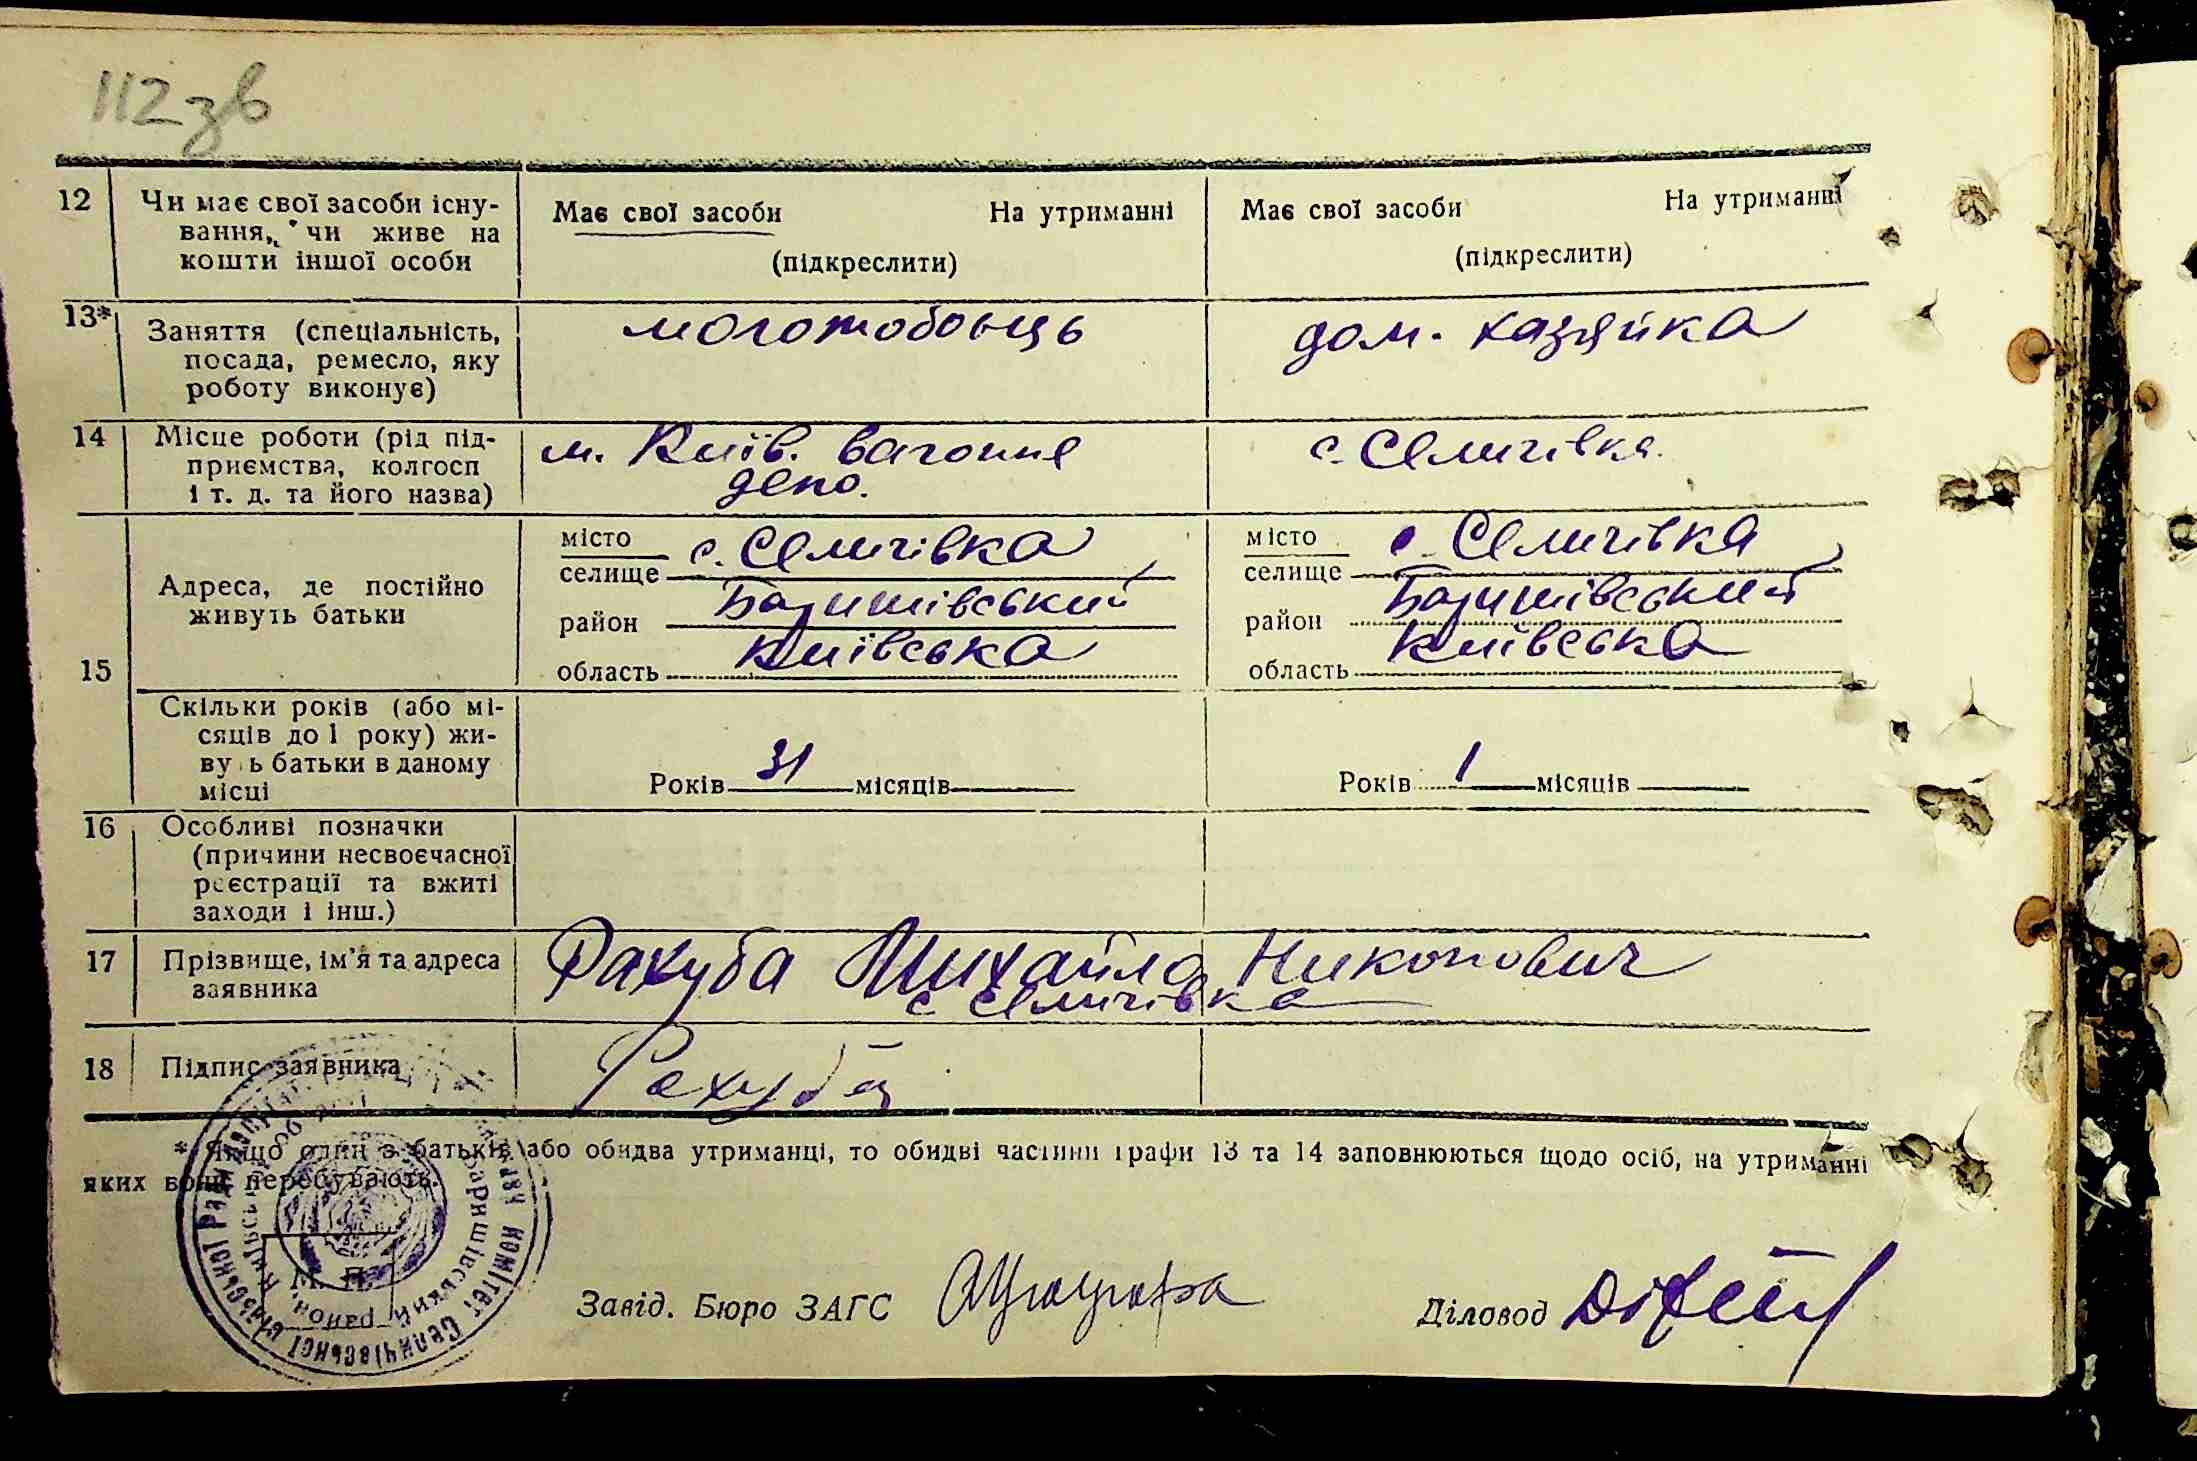 112 зв
12
Чи має свої засоби існу-
вання, чи живе на
кошти іншої особи
Має свої засоби На утриманні
(підкреслити)
Має свої засоби На утриманні
(підкреслити)
13*
Заняття (спеціальність,
посада, ремесло, яку
роботу виконує)
молотобоєць
дом. хазяйка
14
Місце роботи (рід під-
приємства, колгосп
і т. д. та його назва)
м. Київ. вагонне
депо.
с. Селичівка.
15
Адреса, де постійно
живуть батьки
місто
селище с. Селичівка
район Баришівський
область Київська
місто
селище с. Селичівка
район Баришівський
область Київська
Скільки років (або мі-
сяців до 1 року) жи-
вуть батьки в даному
місці
Років 31 місяців
Років 1 місяців
16
Особливі позначки
(причини несвоєчасної
реєстрації та вжиті
заходи і інш.)
17
Прізвище, ім'я та адреса
заявника
Рахуба Михайло Никонович
с Селичівка
18
Підпис заявника
Рахуба
* Якщо один з батьків або обидва утриманці, то обидві частини графи 13 та 14 заповнюються щодо осіб, на утриманні
яких вони перебувають.
М. П.
Завід. Бюро ЗАГС
Діловод
комітет Селичівської сільської Ради
Баришівський район, Київської обл.